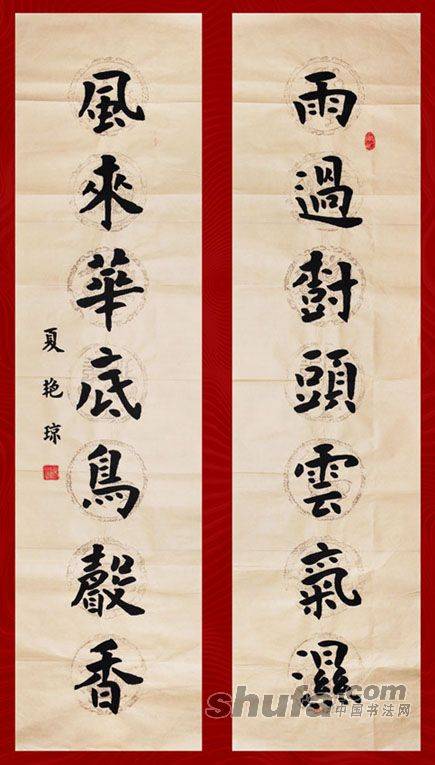 雨過樹頭雲氣濕
風來華底鳥聲香
夏艳琼
shufa.com
中国书法网